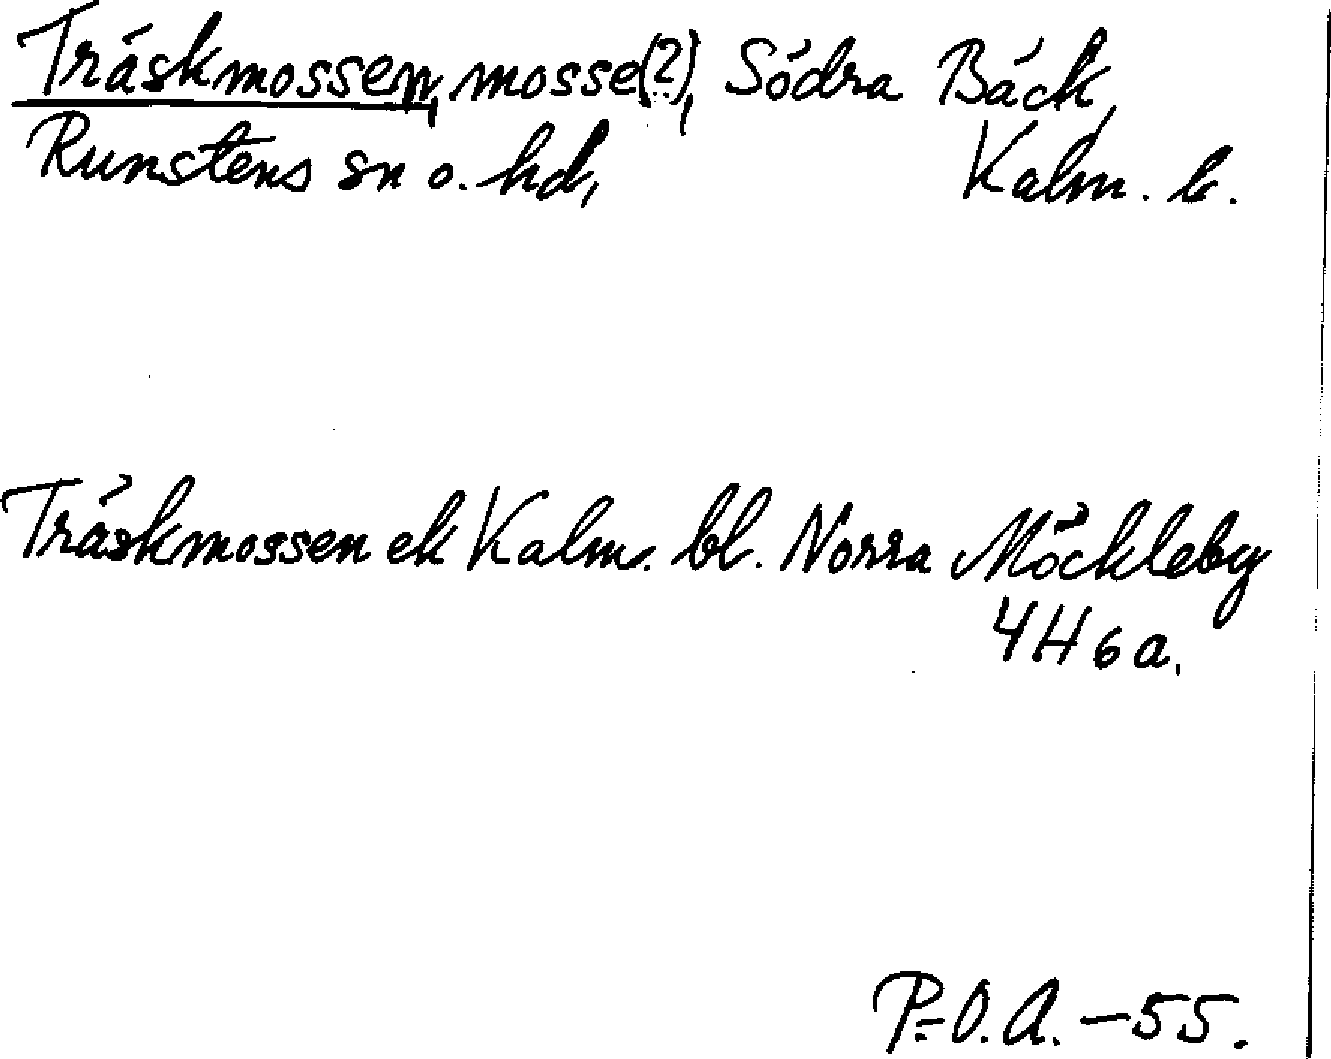 Träskmossen, mosse(?), Södra Bäck,
Runstens sn o. hd, Kalm. l.
Träskmossen ek Kalm. bl. Norra Möckleby
4H6a.
P.O.A. –55.